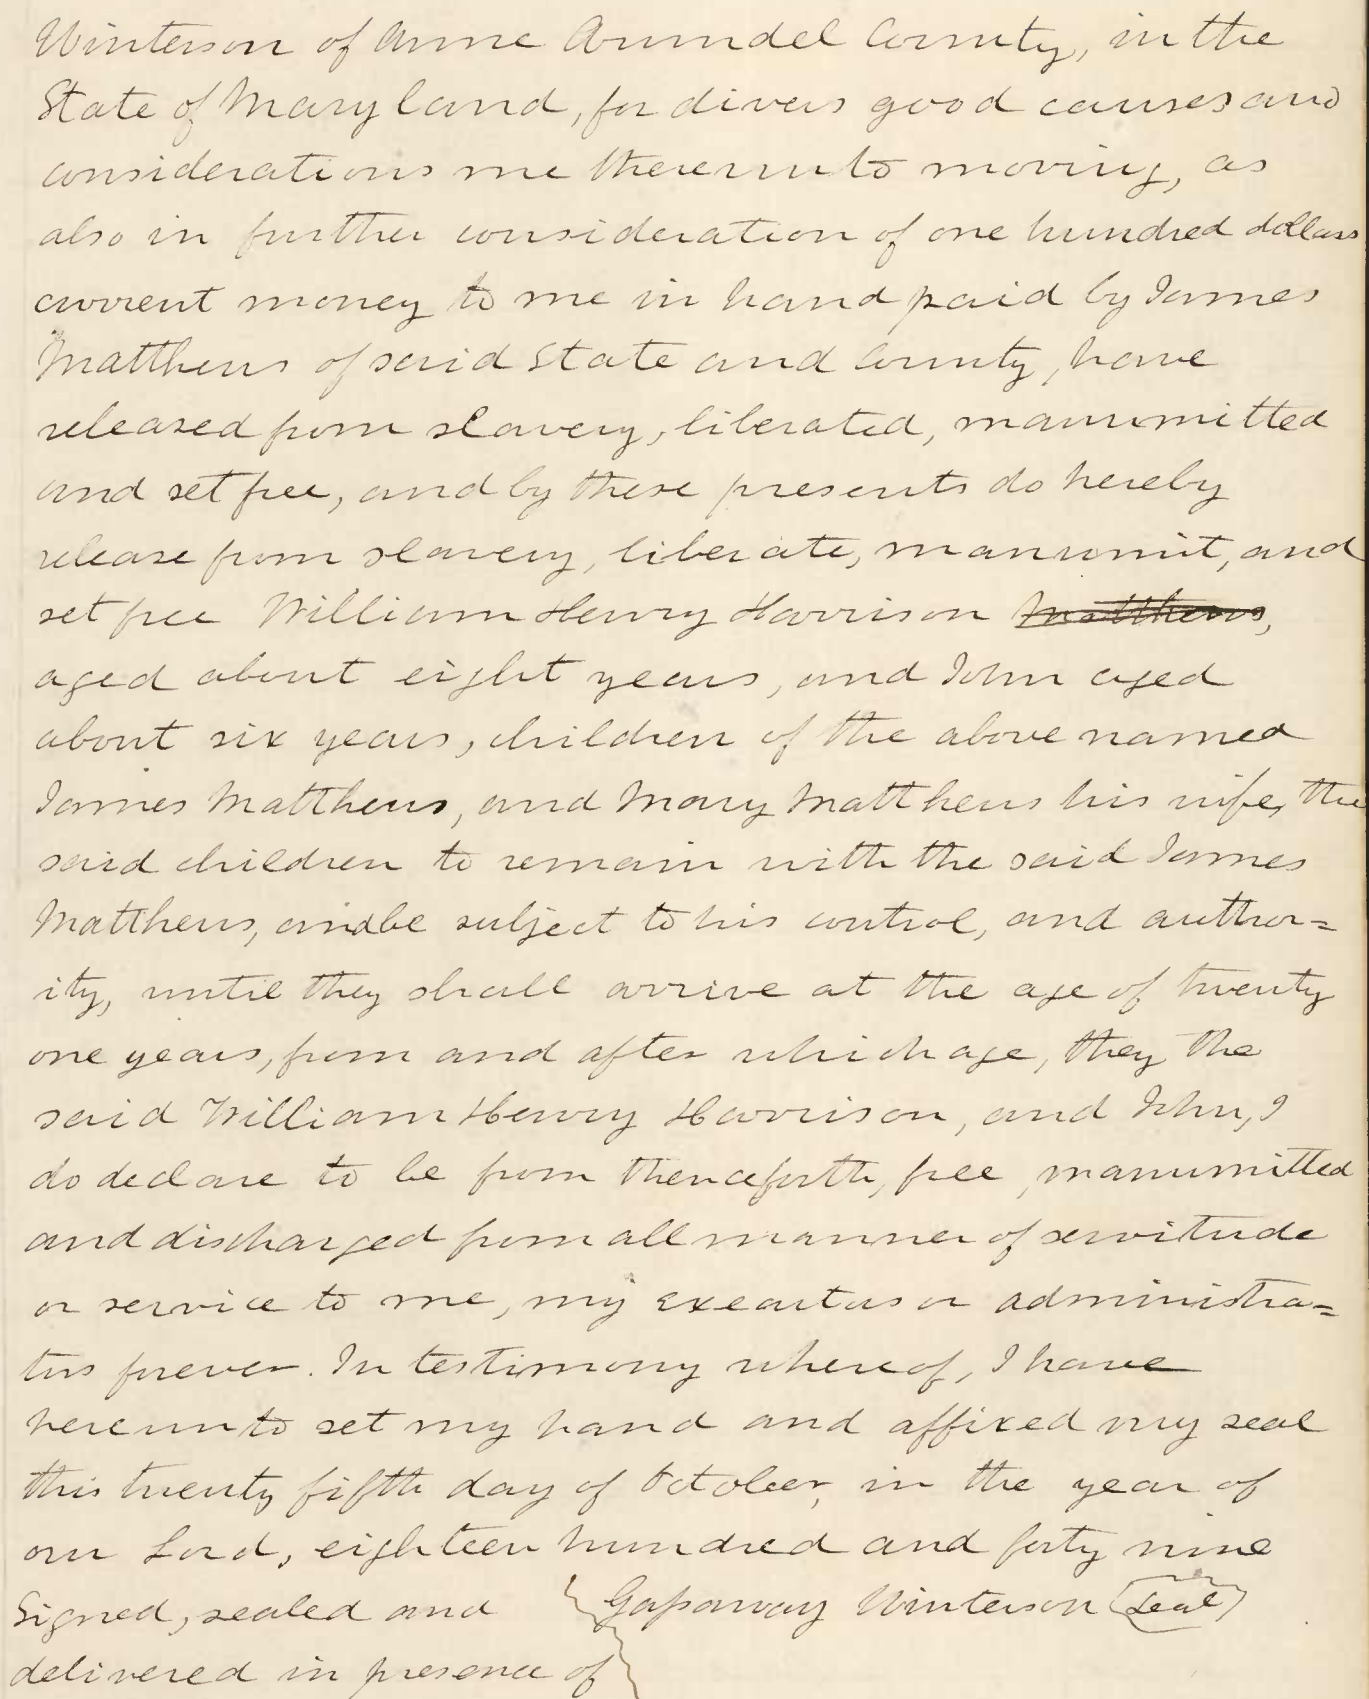 Winterson of Anne Arundel County, in the
State of Maryland, for divers good causes and
considerations me thereunto moving, as
also in further consideration of one hundred dollars
current money to me in hand paid by James
Matthews of said State and County, have
released from slavery, liberated, manumitted
and set free, and by these presents do hereby
release from slavery, liberate, manumit, and
set free William Henry Harrison Matthews,
aged about eight years, and John aged
about six years, children of the above named
James Matthews, and Mary Matthews his wife, the
said children to remain with the said James
Matthews, and be subject to his control, and author=
ity, until they shall arrive at the age of twenty
one years, from and after which age, they the
said William Henry Harrison, and John, I
do declare to be from thenceforth, free, manumitted
and discharged from all manner of servitude
or service to me, my executors or administra=
tors forever. In testimony whereof, I have
hereunto set my hand and affixed my seal
this twenty fifth day of October, in the year of
our Lord, eighteen hundred and forty nine
Signed, sealed and Gassaway Winterson (Seal)
delivered in presence of